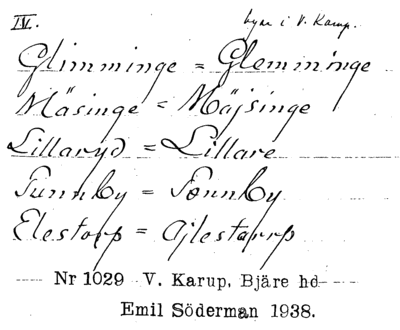 IV.
byar i V. Karup.
Glimminge = Glemminge
Mäsinge = Mäjsinge
Lillaryd = Lillare
Tunnby = Tonnby
Elestorp = Ajlestarrp
Nr 1029 V. Karup, Bjäre hd
Emil Söderman 1938.